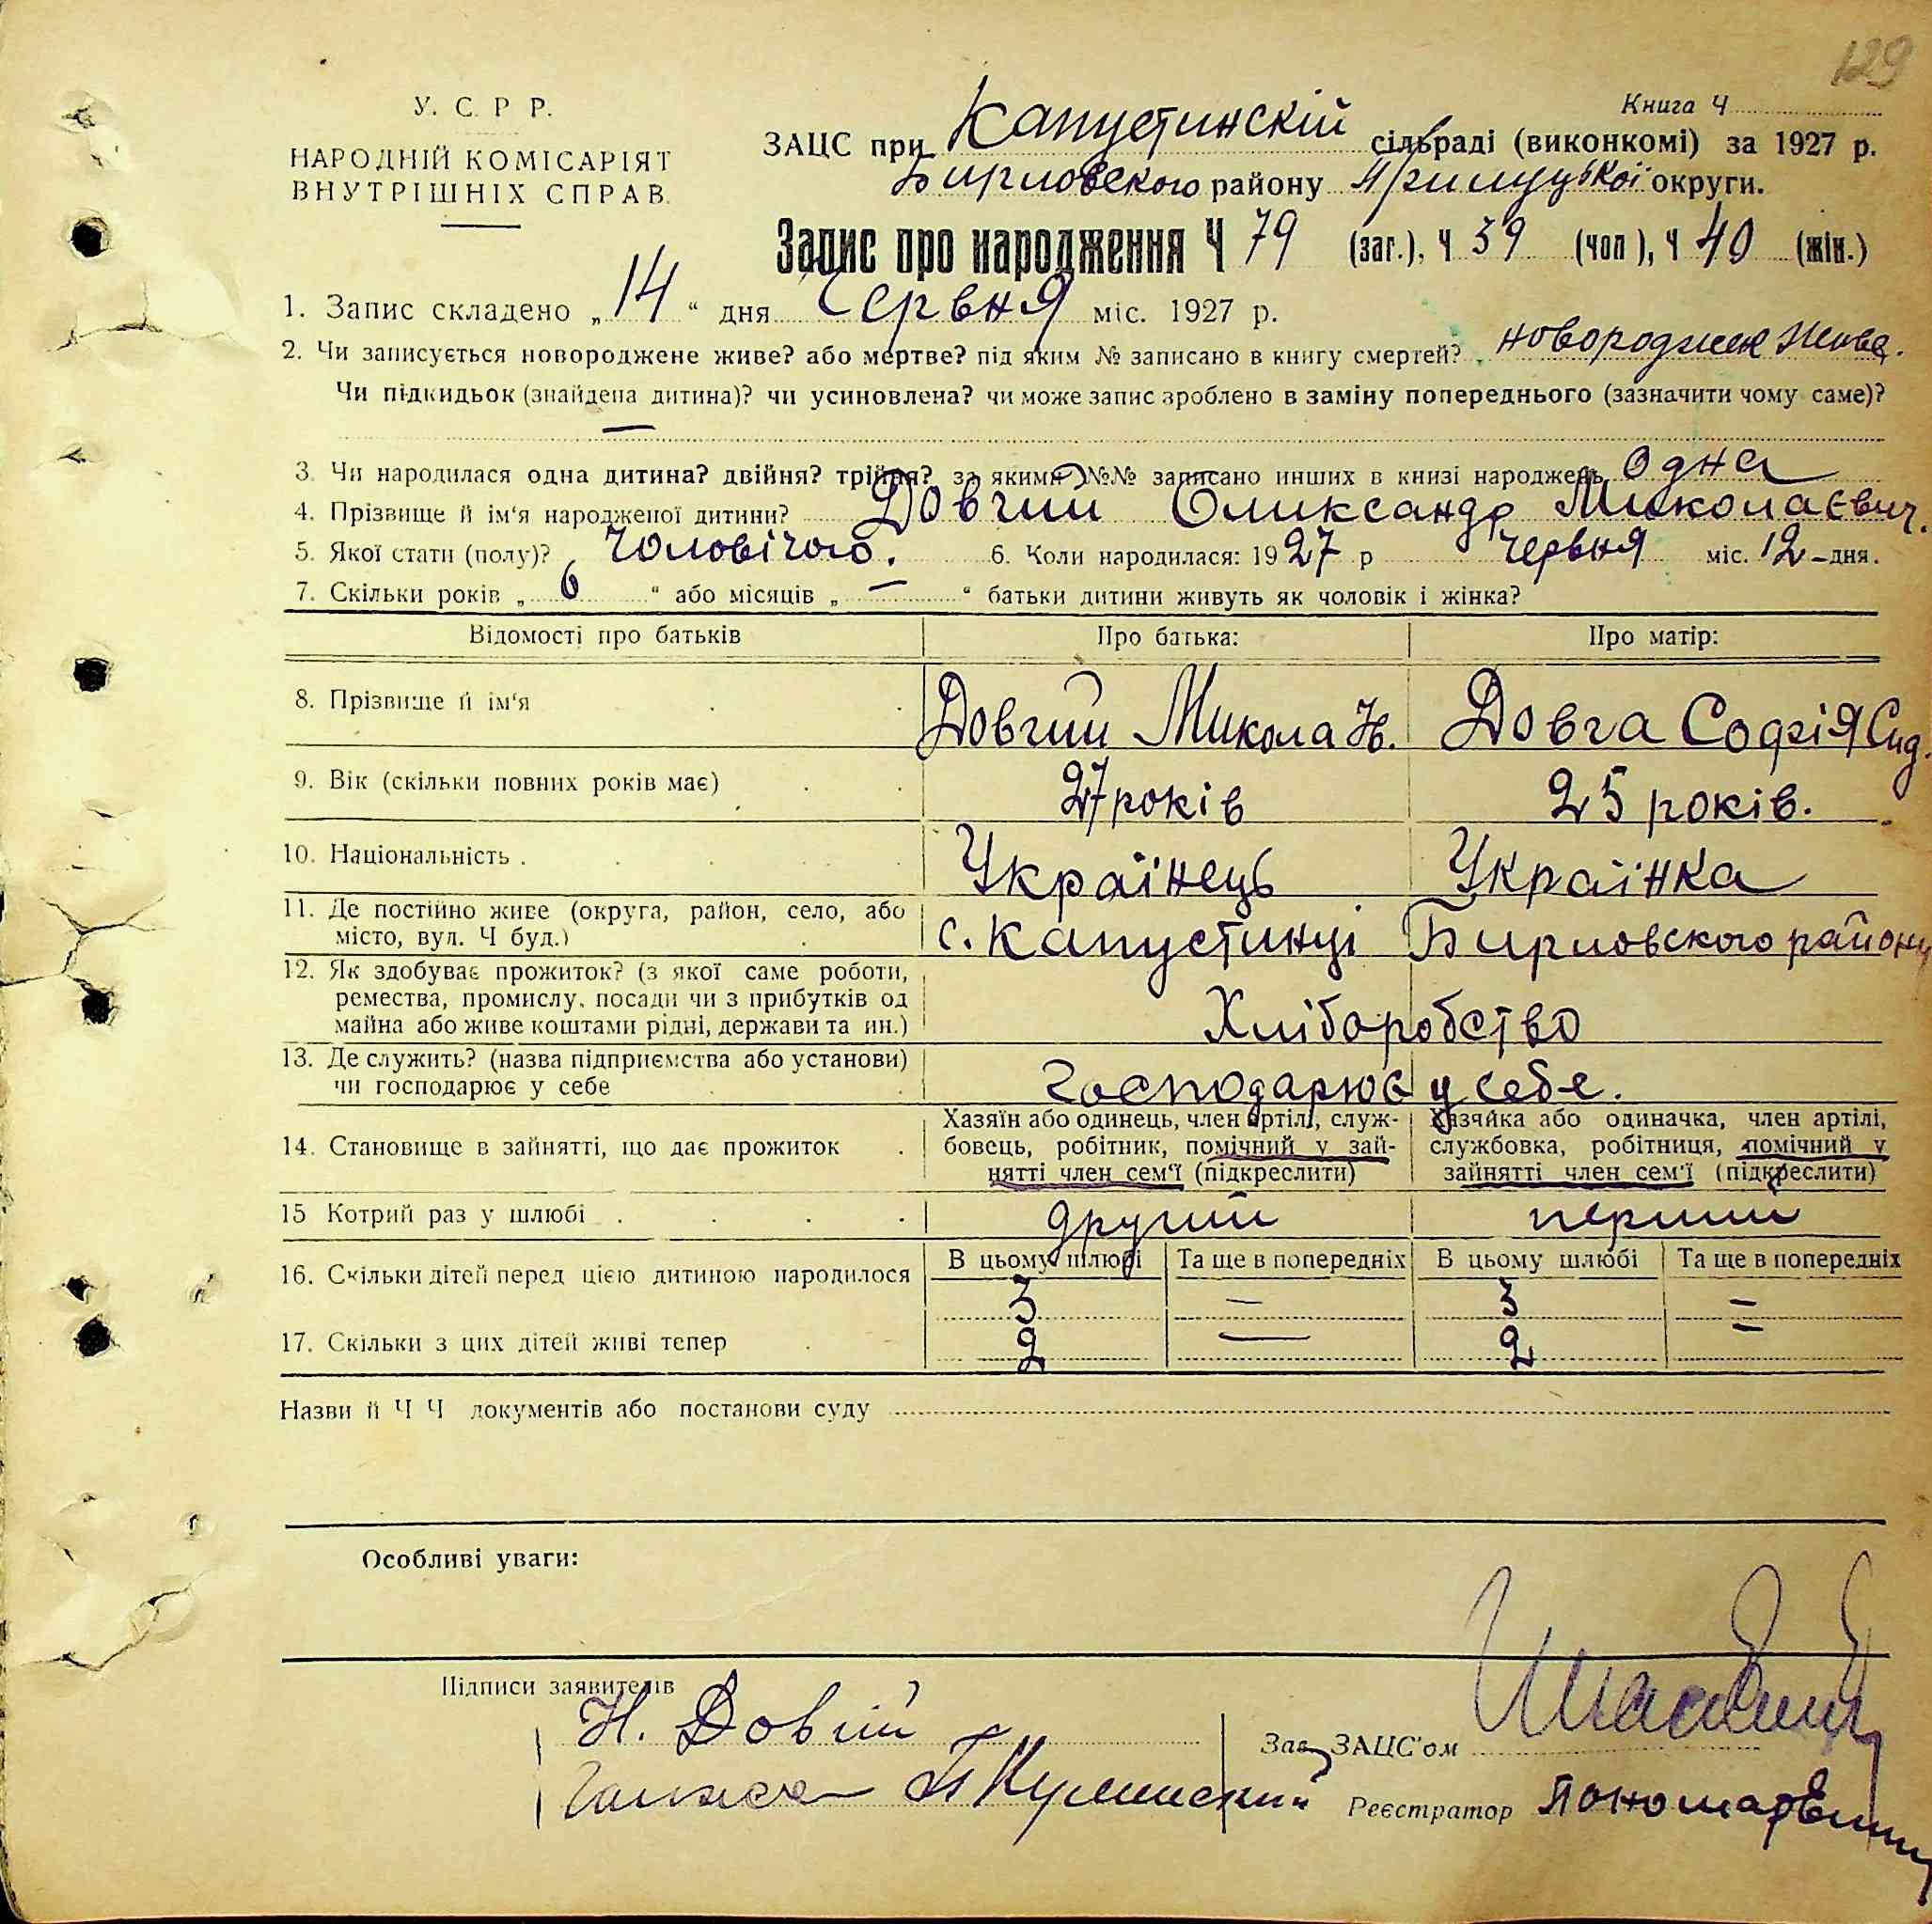 129
Книга Ч
У. С. Р. Р.
НАРОДНІЙ КОМІСАРІЯТ
ВНУТРІШНІХ СПРАВ.
ЗАЦС при Капустинскій сільраді (виконкомі) за 1927 р.
Бирловского району Прилуцької округи.
Запис про народження Ч 79 (заг.), Ч 39 (чол), Ч 40 (жін.)
1. Запис складено „14“ дня Червня міс. 1927 р.
2. Чи записується новороджене живе? або мертве? під яким № записано в книгу смертей? живе.
Чи підкидьок (знайдена дитина)? чи усиновлена? чи може запис зроблено в заміну попереднього (зазначити чому саме)?
—
3. Чи народилася одна дитина? двійня? трійня? за якими №№ записано инших в книзі народжень Одна
4. Прізвище й ім'я народженої дитини? Довгий Олександр Миколаєвич.
5. Якої стати (полу)? Чоловічого. 6. Коли народилася: 1927 р Червня міс. 12-дня.
7. Скільки років „6“ або місяців „—“ батьки дитини живуть як чоловік і жінка?
Відомості про батьків Про батька: Про матір:
8. Прізвище й ім'я Довгий Микола Довга Софія Сид.
9. Вік (скільки повних років має) 27 років 25 років.
10. Національність Українець Українка
11. Де постійно живе (округа, район, село, або
місто, вул. Ч буд.) с. Капустинці Бирловского району
12. Як здобуває прожиток? (з якої саме роботи,
ремества, промислу, посади чи з прибутків од
майна або живе коштами рідні, держави та ин.) Хліборобство
13. Де служить? (назва підприємства або установи)
чи господарює у себе Господарює у себе.
14. Становище в зайнятті, що дає прожиток
Хазяїн або одинець, член артілі, служ-
бовець, робітник, помічний у зай-
нятті член сем'ї (підкреслити)
Хазяйка або одиначка, член артілі,
службовка, робітниця, помічний у
зайнятті член сем'ї (підкреслити)
15 Котрий раз у шлюбі другий перший
В цьому шлюбі Та ще в попередніх В цьому шлюбі Та ще в попередніх
16. Скільки дітей перед цією дитиною народилося 3 — 3 —
17. Скільки з цих дітей живі тепер 2 — 2 —
Назви й Ч Ч документів або постанови суду
Особливі уваги:
Підписи заявителів
Н. Довгій
Зав. ЗАЦС'ом
Реєстратор